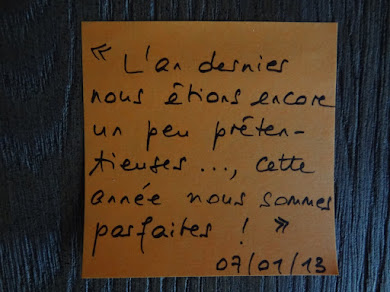 « L'an dernier
nous étions encore
un peu préten-
tieuses ..., cette
année nous sommes
parfaites ! »
07/01/13